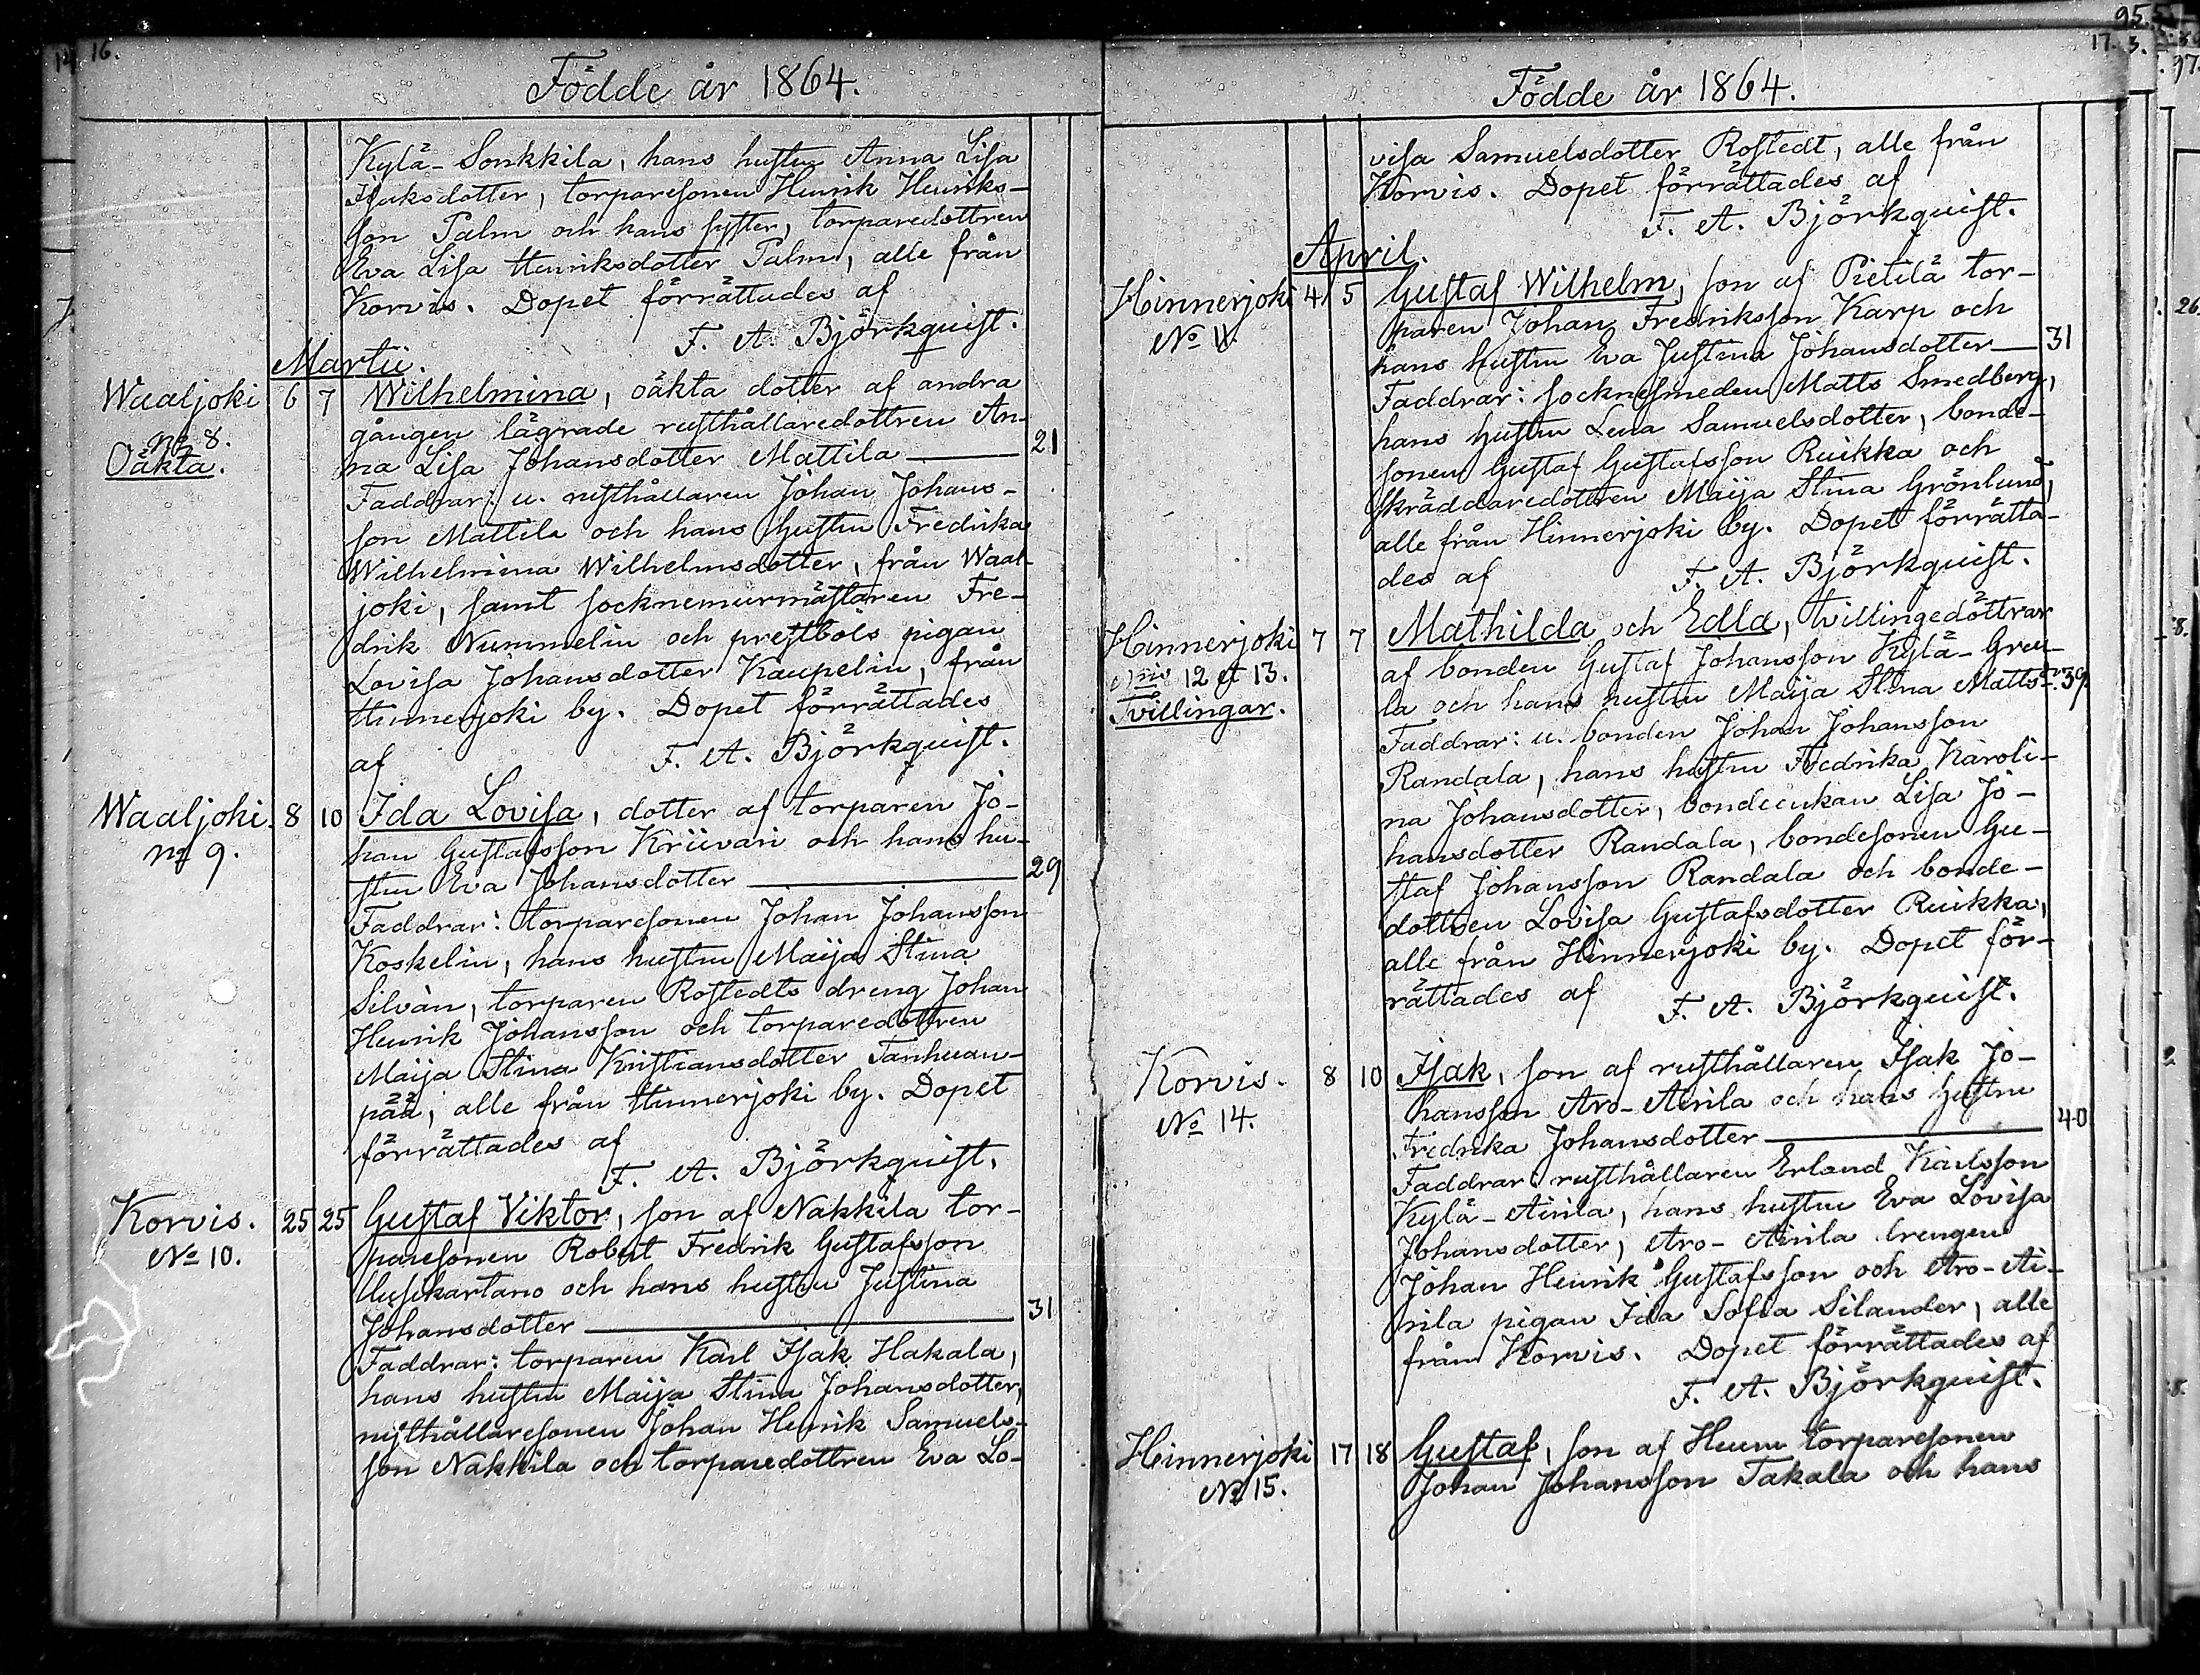 16.
Födde år 1864.
Kylä-Sonkkila, hans hustru Anna Lisa
Isaksdotter, torparesonen Henrik Henriks-
son Palm och hans syster, torparedottren
Eva Lisa Henriksdotter Palm, alle från
Korvis. Dopet förrättades af
F. A. Björkquist.
Martii.
Waaljoki 6 7 Wilhelmina, oäkta dotter af andra
№ 8. gången lägrade rusthållaredottren An-
Oäkta. na Lisa Johansdotter Mattila — 21
Faddrar: u. rusthållaren Johan Johans-
son Mattila och hans hustru Fredrika
Wilhelmina Wilhelmsdotter, från Waal-
joki, samt socknemurmästaren Fre-
drik Nummelin och prestbols pigan
Lovisa Johansdotter Kaupelin, från
Hinnerjoki by. Dopet förrättades
af F. A. Björkquist.
Waaljoki. 8 10 Ida Lovisa, dotter af torparen Jo-
№ 9. han Gustafsson Kriivari och hans hu-
stru Eva Johansdotter — 29
Faddrar: torparesonen Johan Johansson
Koskelin, hans hustru Maija Stina
Silvàn, torparen Rostedts dreng Johan
Henrik Johansson och torparedottren
Maija Stina Kristiansdotter Tanhuan-
pää, alle från Hinnerjoki by. Dopet
förrättades af
F. A. Björkquist.
Korvis. 25 25 Gustaf Viktor, son af Nakkila tor-
№ 10. paresonen Robert Fredrik Gustafsson
Uusikartano och hans hustru Justina
Johansdotter — 31
Faddrar: torparen Karl Isak Hakala,
hans hustru Maija Stina Johansdotter,
rusthållaresonen Johan Henrik Samuels-
son Nakkila och torparedottren Eva Lo-
17.
Födde år 1864.
visa Samuelsdotter Rostedt, alle från
Korvis. Dopet förrättades af
F. A. Björkquist.
April.
Hinnerjoki 4 5 Gustaf Wilhelm, son af Pietilä tor-
№ 11. paren Johan Fredriksson Karp och
hans hustru Eva Justina Johansdotter — 31
Faddrar: socknesmeden Matts Smedberg,
hans hustru Lena Samuelsdotter, bonde-
sonen Gustaf Gustafsson Ruikka och
skräddaredottren Maija Stina Grönlund,
alle från Hinnerjoki by. Dopet förrätta-
des af F. A. Björkquist.
Hinnerjoki 7 7 Mathilda och Edla, tvillingedöttrar
№is 12 et 13. af bonden Gustaf Johansson Kylä-Greu-
Tvillingar. la och hans hustru Maija Stina Mattsdr. 39
Faddrar: u. bonden Johan Johansson
Randala, hans hustru Fredrika Karoli-
na Johansdotter, bondeenkan Lisa Jo-
hansdotter Randala, bondesonen Gu-
staf Johansson Randala och bonde-
dottren Lovisa Gustafsdotter Ruikka,
alle från Hinnerjoki by. Dopet för-
rättades af F. A. Björkquist.
Korvis. 8 10 Isak, son af rusthållaren Isak Jo-
№ 14. hansson Aro-Anila och hans hustru
Fredrika Johansdotter — 40
Faddrar: rusthållaren Erland Karlsson
Kylä-Anila, hans hustru Eva Lovisa
Johansdotter, Aro-Anila drengen
Johan Henrik Gustafsson och Aro-A-
nila pigan Ida Sofia Silander, alle
från Korvis. Dopet förrättades af
F. A. Björkquist.
Hinnerjoki 17 18 Gustaf, son af torparesonen
№ 15. Johan Johansson Takala och hans